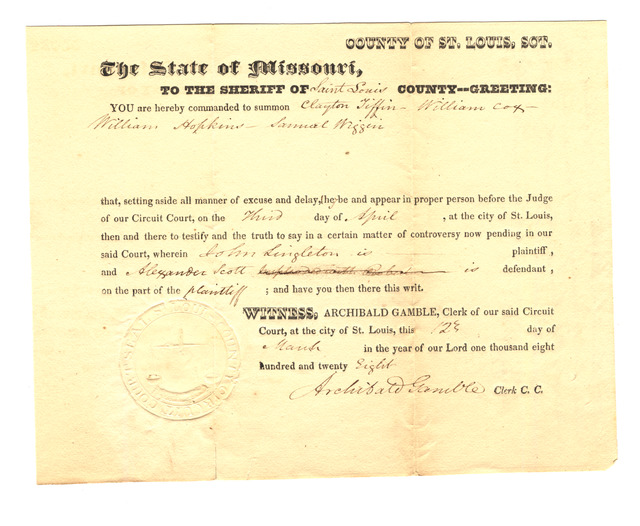 COUNTY OF ST. LOUIS, SCT.
The State of Missouri,
TO THE SHERIFF OF Saint Louis COUNTY--GREETING:
YOU are hereby commanded to summon Clayton Tiffin - William Cox -
William Hopkins - Samuel Wiggin
that, setting aside all manner of excuse and delay, they be and appear in proper person before the Judge
of our Circuit Court, on the Third day of April , at the city of St. Louis,
then and there to testify and the truth to say in a certain matter of controversy now pending in our
said Court, wherein John Singleton is plaintiff,
and Alexander Scott is defendant,
on the part of the plaintiff ; and have you then there this writ.
WITNESS, ARCHIBALD GAMBLE, Clerk of our said Circuit
Court, at the city of St. Louis, this day of
March in the year of our Lord one thousand eight
hundred and twenty Eight
Archibald Gamble Clerk C. C.